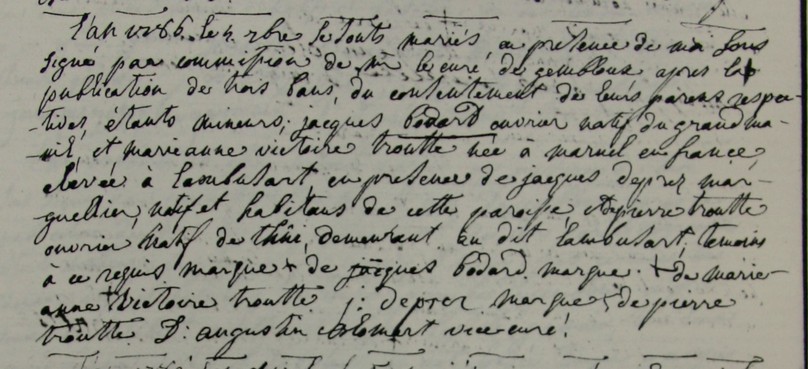 L'an 1786. le 7 xbre se sonts mariés, en présence de moi sous
signé par commission de mr le curé de gembloux apres la
publication de trois bans, du consentement de leurs parens respec-
-tives, étants mineurs; jacques bodard ouvrier natif du grand ma-
-nil, et marie anne victoire troutte née à maruel en france,
élevée à Lambusart, en presence de jacques deprez mar-
guellier, natif et habitans de cette paroisse, et pierre troutte
ouvrier natif de thiu, demeurant au dit Lambusart, temoins
à ce requis marque + de jacques bodard. marque + de marie-
anne victoire troutte j: deprez marque de pierre
troutte D: augustin vice-curé.